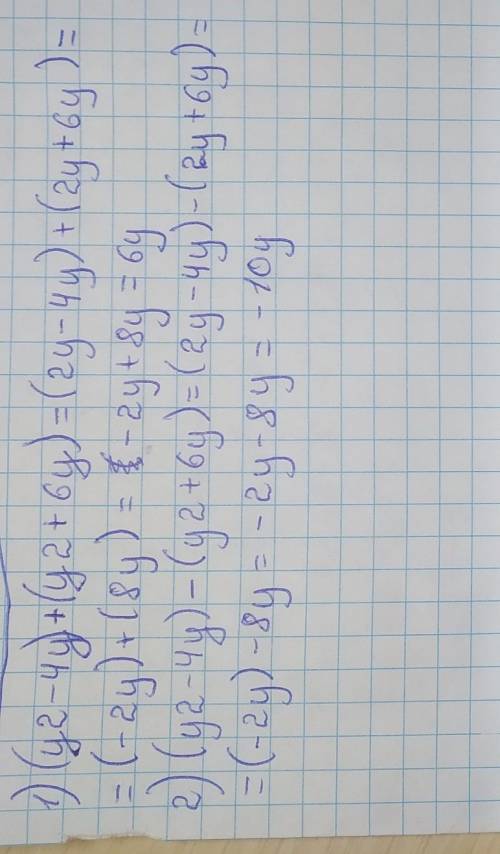 1) (y2-4y)+(y2+6y)=(2y-4y)+(2y+6y)=
=(-2y)+(8y)= -2y+8y=6y
2) (y2-4y)-(y2+6y)=(2y-4y)-(2y+6y)=
=(-2y)-8y=-2y-8y=-10y